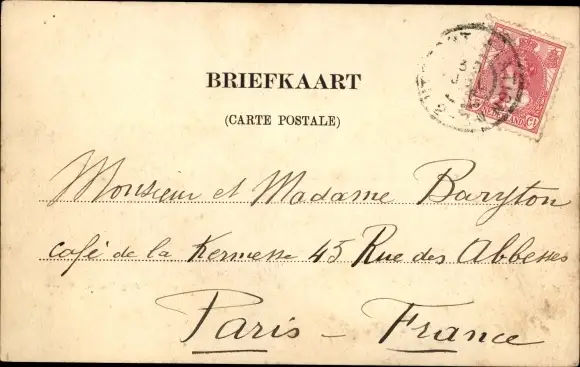 BRIEFKAART
(CARTE POSTALE)
NEDERLAND
Monsieur et Madame Baryton
café de la Kermesse 45 Rue des Abbesses
Paris – France